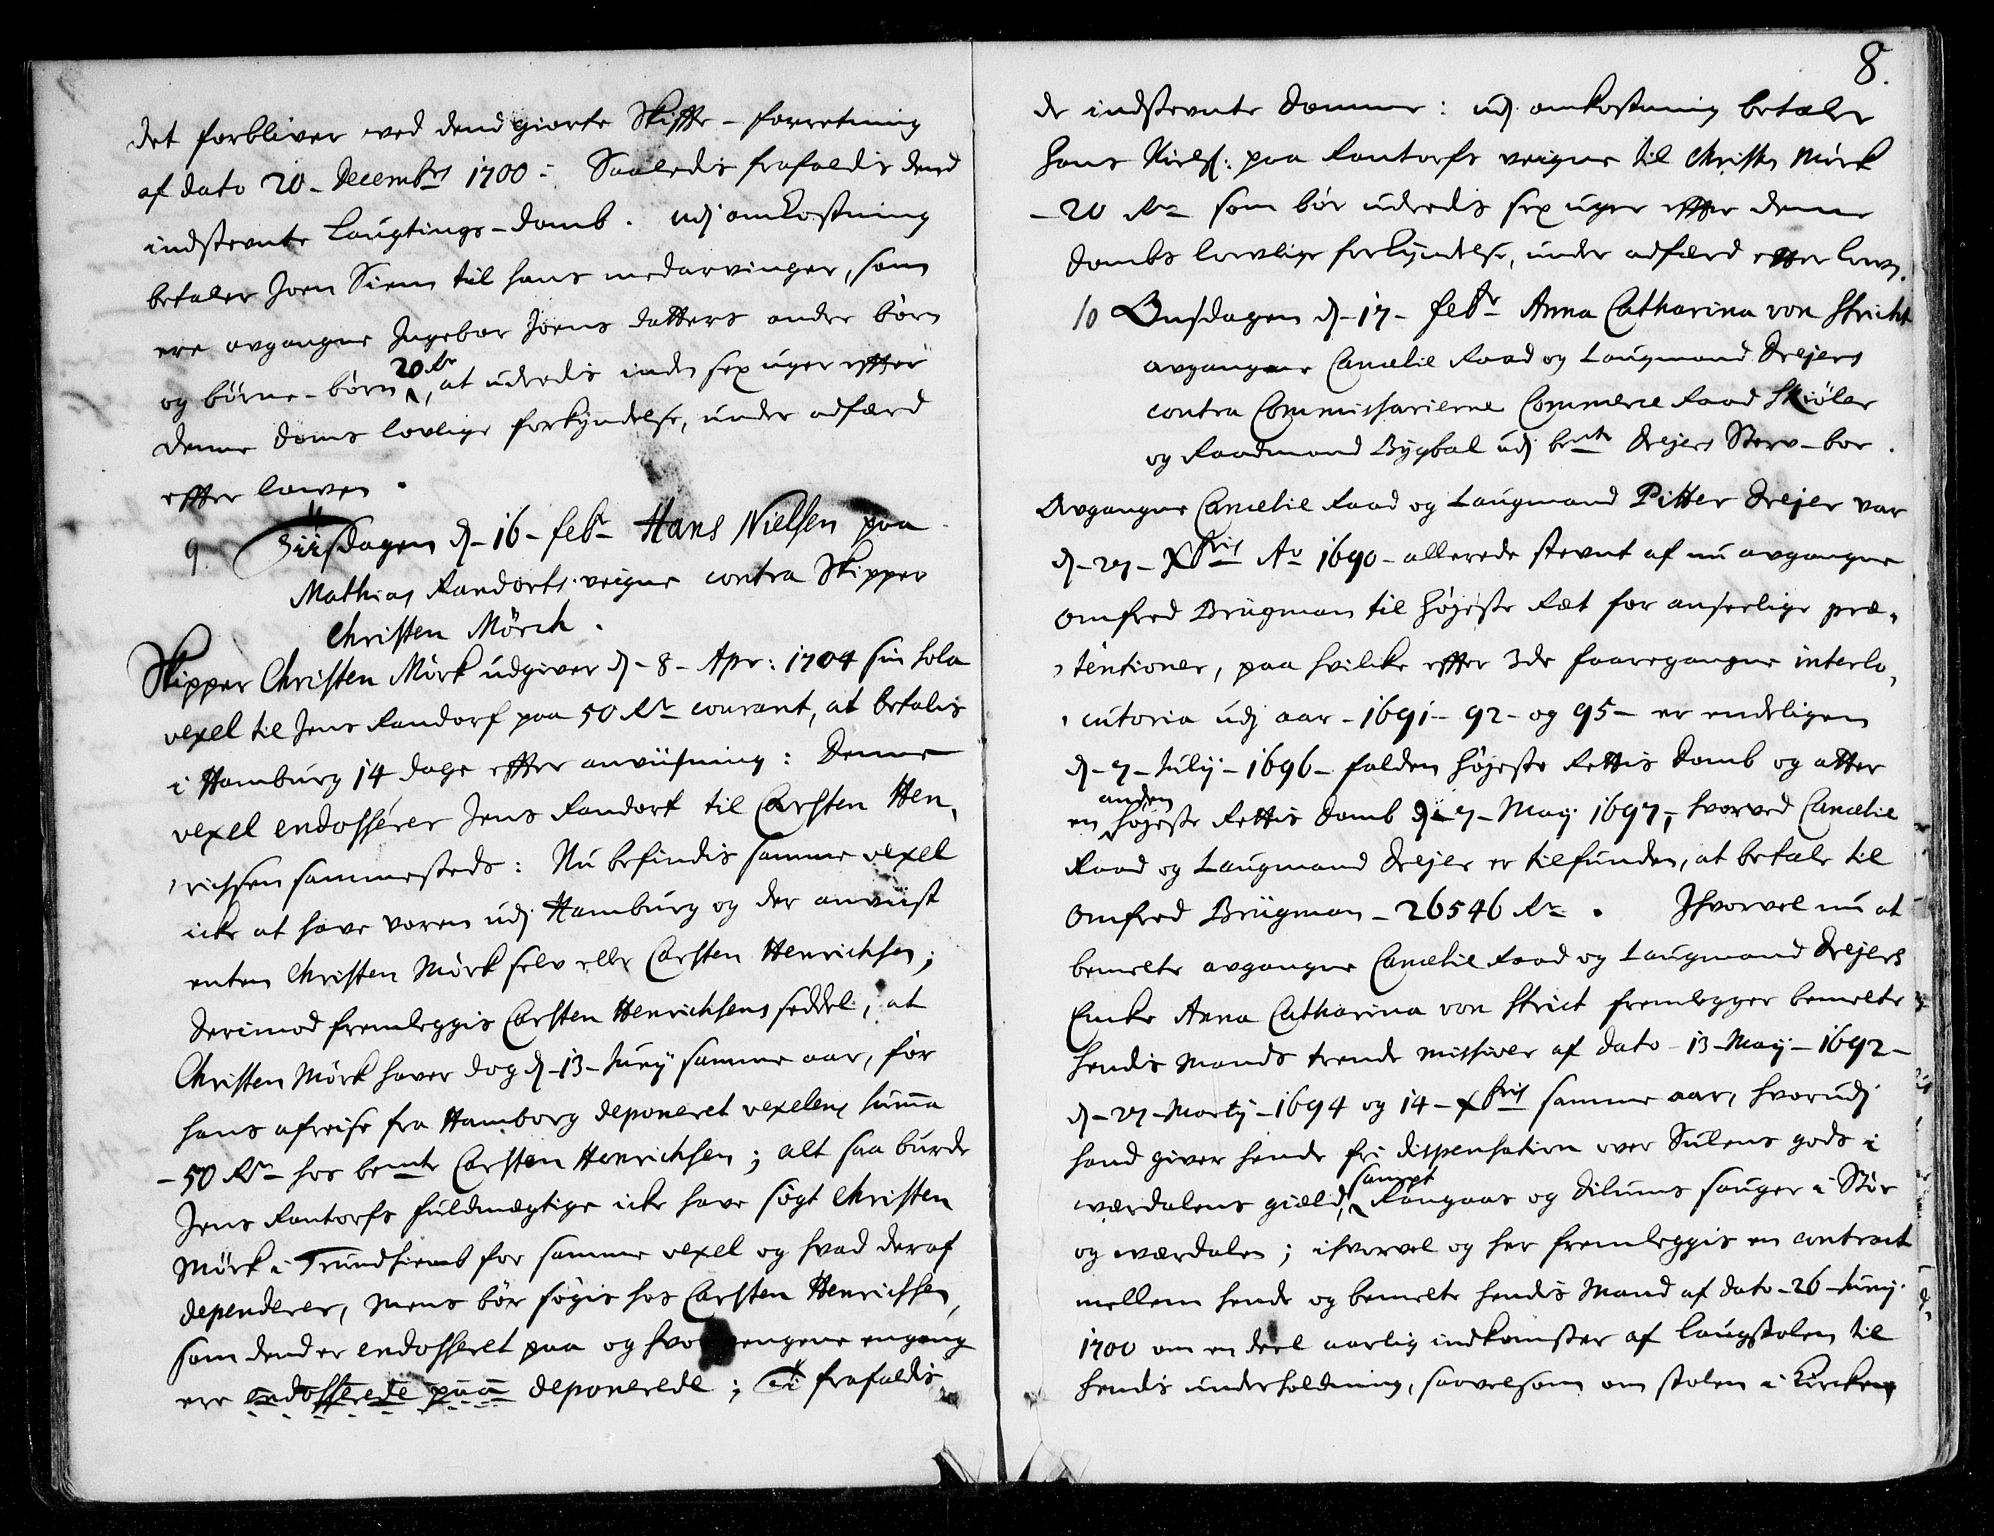 det forbliver wed dend giorte Skiffte-forretning
af dato 20-Decembris 1700: Saaledis frafaldis dend
indstevnte Laugtings-domb. udj omkostning
betaler Joen Siem til hans medarvinger, som
ere avgangne Ingebor Joens datters andre børn
og børne-børn 20 Rdr, at uderedis inden sex uger effter
denne doms lovlige forkyndelse, under adfærd
effter lowen.
9. Tiisdagen d-16-febr Hans Nielsen paa
Mathias Randorfs veigne contra Skipper
Christen Mörch.
Skipper Christen Mörk udgiver d-8-Apr: 1704 sin sola
vexel til Jens Randorf paa 50 Rdr courant, at betalis
i Hamburg 14 dage effter anviisning: Denne
vexel endosserer Jens Randorf til Carsten Hen,
richsen sammesteds: Nu befindis samme vexel
icke at have voren udj Hamburg og der anviist
enten Christen Mörk selv eller Carsten Henrichsen;
Derimod fremleggis Carsten Henrichsens seddel, at
Christen Mörk haver dog d-13-Junij samme aar, för
hans afreise fra Hamborg deponeret vexelens summa
-50 Rdr- hos bemte Carsten Henrichsen; alt saa burde
Jens Rantorfs fuldmægtige icke have sögt Christen
Mörk i Trundhiemb for samme vexel og hvad deraf
dependerer, mens bör sögis hos Carsten Henrichsen,
som dend er endosseret paa og hvor pengene engang
ere endosserede paa deponerede; Ti frafaldis
8.
de indstevnte domme: udj omkostning betaler
Hans Niels: paa Rantorfs veigne til Christen Mörk
-20 Rdr som bör uderedis sex uger effter denne
dombs lovlige forkyndelse, under adfærd effter lowen.
10 Onsdagen d-17-febr Anna Catharina von Stricht
avgangne Cancelie Raad og Laugmand Drejers
contra Commissarierne Commerce Raad Skiøler
og Raadmand Bygbal udj bemte Drejers Sterv-boe.
Avgangne Cancelie Raad og Laugmand Pitter Drejer var
d-27-Xbris Ao 1690-allerede stevnt af nu avgangne
Omfred Brügman til høieste Ræt for anseelige præ,
tentioner, paa hvilke effter 3de foregangne interlo,
cutoria udj aar-1691-92-og 95-er endeligen
d-7-Julij-1696-falden høieste Rettis domb og atter
en anden høieste Rettis domb d-7-Maij 1697, hvorved Cancelie
Raad og Laugmand Drejer er tilfunden, at betale til
Omfred Brügman-26546 Rdr. Ihvorvel nu at
bemelte avgangne Cancelie Raad og Laugmand Drejers
Encke Anna Catharina von Strict fremlegger bemelte
hendis Mands trende missiver af dato-13-Maij-1692-
d-27-Martij-1694 og 14-Xbris samme aar, hvorudj
hand giver hende fri dispensation over Sulens gods i
wærdalens gield, sampt Rongaas og Dilums sauger i Stör
og wærdalen; ihvorvel og her fremleggis en contract
mellem hende og bemelte hendis Mand af dato-26-Junij
1700 om en deel aarlig indkomster af laugstolen til
hendis underholdning, saavelsom om stolen i Kircken,